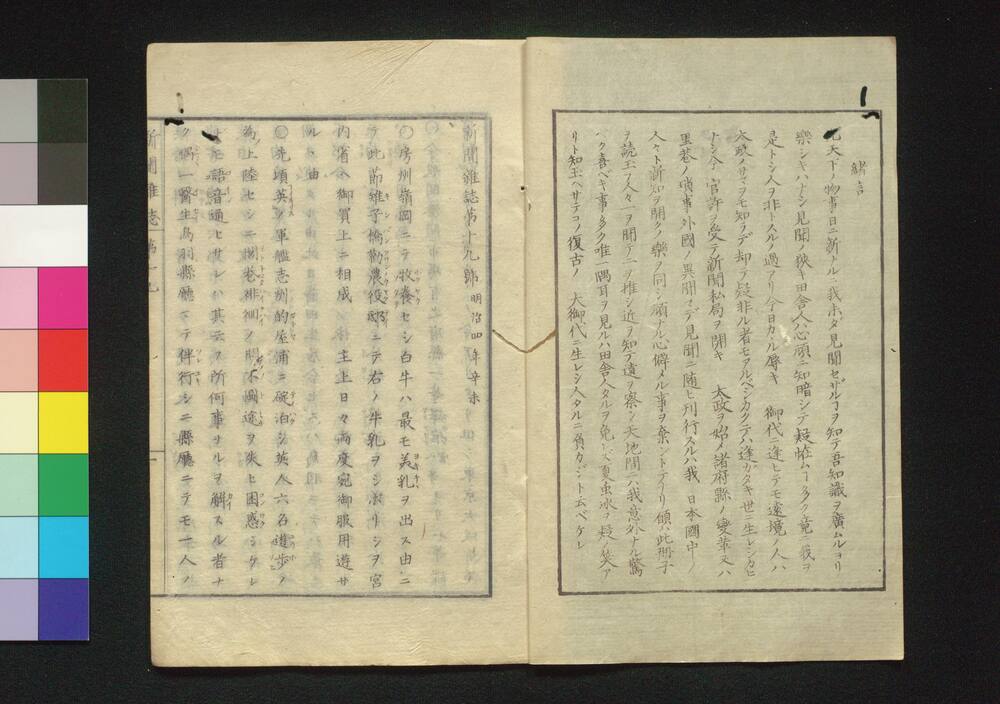 緒言
凡天下ノ物事日ニ新ナル我未ダ見聞セザルヿヲ知テ吾知識ヲ廣ムルヨリ
樂シキハナシ見聞ノ狹キ田舎人ハ心頑ニ知暗シテ疑怪ムヿ多ク竟ニ我ヲ
是トシ人ヲ非トスルノ過アリ今日カヽル辱キ 御代ニ逢ヒテモ遠境ノ人ハ
大政ノサマヲモ知ラデ却テ疑非ル者モアルベシカクテハ逢ガタキ世ニ生レシカヒ
ナシ今 官許ヲ受テ新聞私局ヲ開キ 大政ノ始メ諸府縣ノ變革又ハ
里巷ノ瑣事外國ノ異聞マデ見聞ニ随ヒ刋行スルハ我 日本國中ノ
人々ト新知ヲ開クノ樂ヲ同シ頑ナル心僻メル事ヲ棄ントテナリ傾ハ此冊子
ヲ読玉フ人々一ヲ聞テ二ヲ推シ近ヲ知テ遠ヲ察シ天地間ニハ我意外ナル驚
ベク喜ベキ事多ク唯一隅耳ヲ見ルハ田舎人タルヲ免レズ夏虫冰ヲ疑ノ笑ア
リト知玉ヘサテコソ復古ノ 大御代ニ生レシ人タルニ負カジト云ベケレ
新聞雜誌第十九號 明治四年辛未
〇房州嶺岡ニテ牧養セシ白牛ハ最モ美乳ヲ出ス由ニ
テ此節雉子橋勸農役邸ニテ右ノ牛乳ヲシボリシヲ宮
内省ヘ御買上ニ相成 主上日々両度宛御服用遊サ
ルヽ由
〇先頃英ノ軍艦志州的屋浦ニ碇泊シ英人六名遊歩ノ
為ノ上陸セシニ村巷徘徊ノ間不圖途ヲ失ヒ困惑シケレ
𪜈語音通セサレバ其云フ所何事ナルヲ解スル者ナ
ク偶一醫生鳥羽縣廳ニテ伴行シニ縣廳ニテモ一人ノ
新聞雜誌 第十九
一